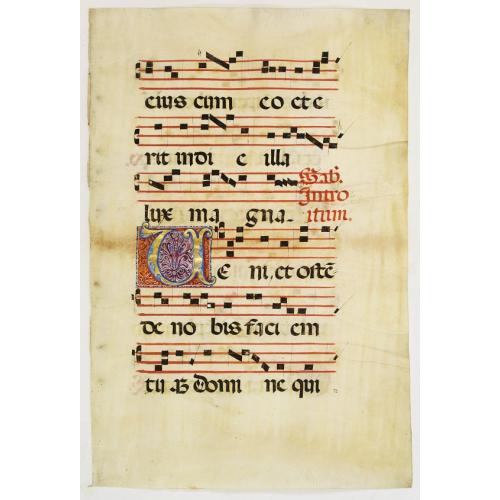 eius cum co et e
rit in di e illa
Sab̄.
Intro
lux ma gna. itum.
UE ni, et ostē
de no bis faci em
tuā Domi ne qui